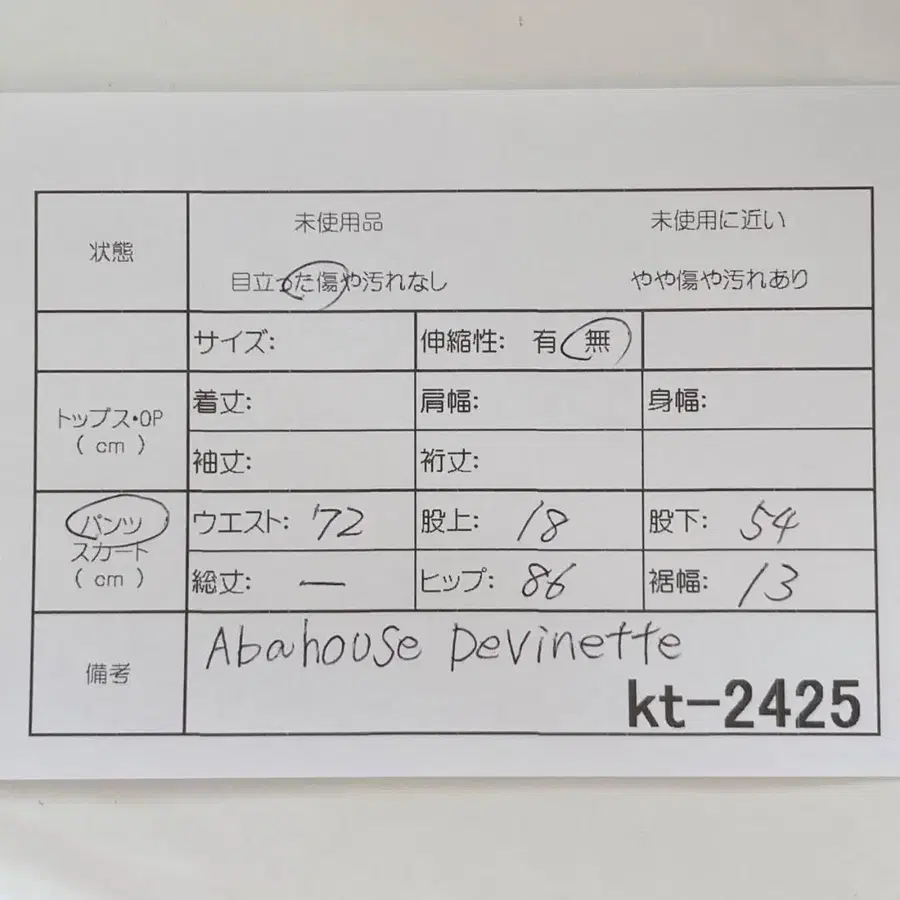 状態
未使用品 未使用に近い
目立った傷や汚れなし やや傷や汚れあり
サイズ: 伸縮性: 有 無
トップス・OP
( cm )
着丈: 肩幅: 身幅:
袖丈: 裄丈:
パンツ
スカート
( cm )
ウエスト: 72 股上: 18 股下: 54
総丈: — ヒップ: 86 裾幅: 13
備考
Abahouse Devinette
kt-2425